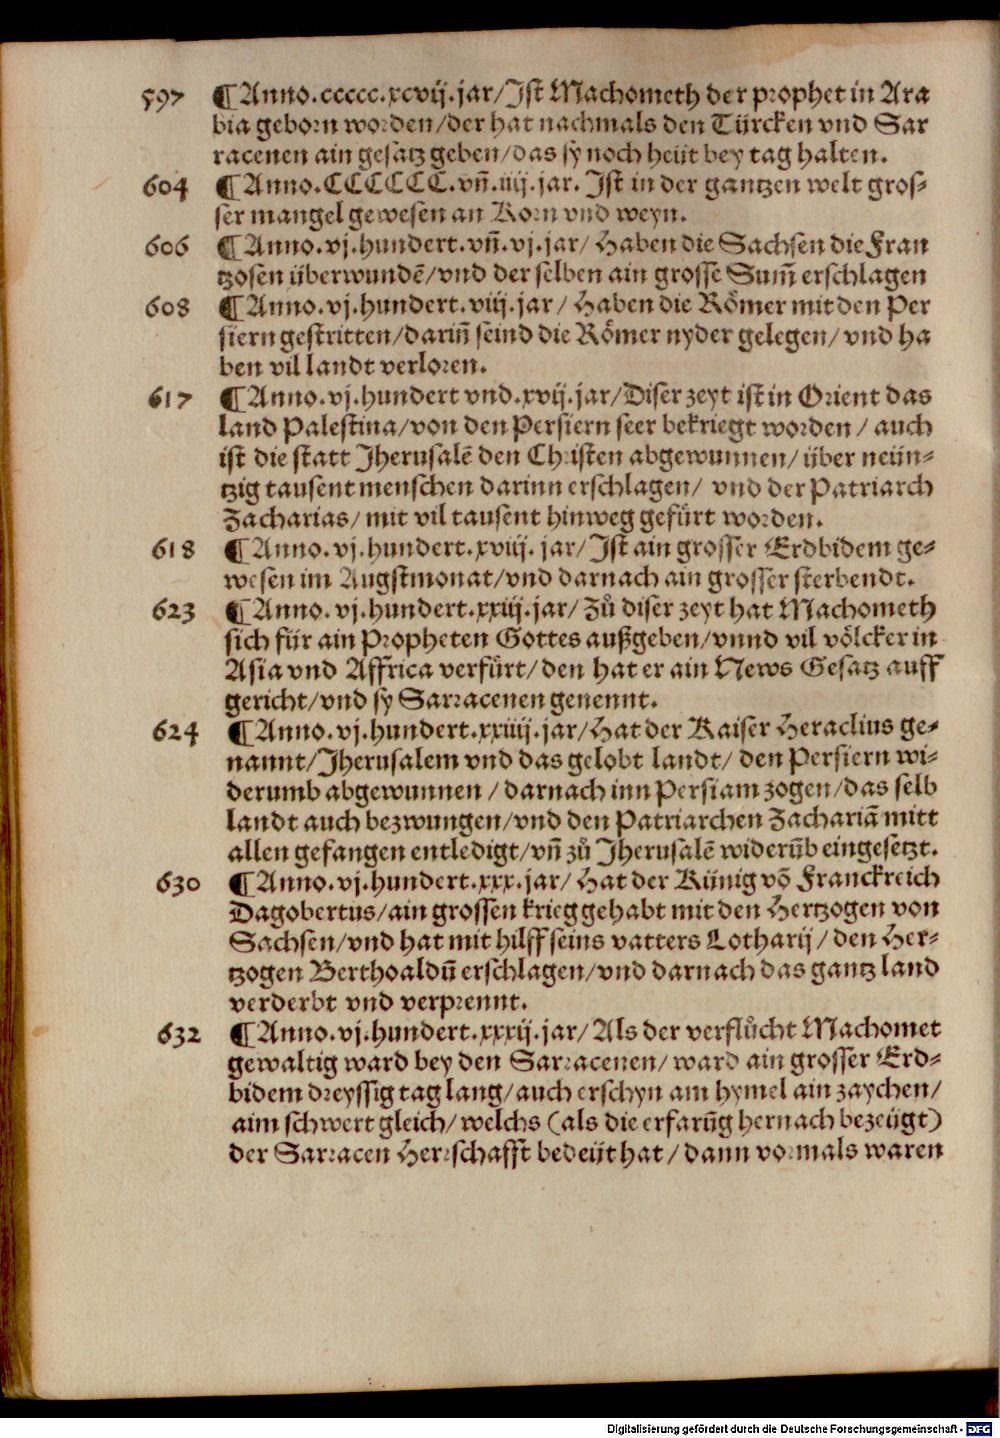 597 ¶Anno.ccccc.xcvij.jar/Ist Machometh der prophet in Ara
bia geborn worden/der hat nachmals den Türcken vnd Sar
racenen ain gesatz geben/das sy noch heüt bey tag halten.
604 ¶Anno.CCCCCC.vñ.iiij.jar. Ist in der gantzen welt gros-
ser mangel gewesen an Korn vnd weyn.
606 ¶Anno.vj.hundert.vñ.vj.jar/Haben die Sachsen die Fran
tzosen überwundẽ/vnd der selben ain grosse Sum̃ erschlagen
608 ¶Anno.vj.hundert.viij.jar/Haben die Rômer mit den Per
siern gestritten/dariñ seind die Rômer nyder gelegen/vnd ha
ben vil landt verloren.
617 ¶Anno.vj.hundert vnd.xvij.jar/Diser zeyt ist in Orient das
land Palestina/von den Persiern seer bekriegt worden/auch
ist die statt Jherusalẽ den Christen abgewunnen/über neün-
tzig tausent menschen darinn erschlagen/ vnd der Patriarch
Zacharias/mit vil tausent hinweg gefürt worden.
618 ¶Anno.vj.hundert.xviij.jar/Ist ain grosser Erdbidem ge-
wesen im Augstmonat/vnd darnach ain grosser sterbendt.
623 ¶Anno.vj.hundert.xxiij.jar/Zů diser zeyt hat Machometh
sich für ain Propheten Gottes außgeben/vnnd vil völcker in
Asia vnd Affrica verfürt/den hat er ain News Gesatz auff
gericht/vnd sy Sarracenen genennt.
624 ¶Anno.vj.hundert.xxiiij.jar/Hat der Kaiser Heraclius ge-
nannt/Jherusalem vnd das gelobt landt/ den Persiern wi-
derumb abgewunnen/darnach inn Persiam zogen/das selb
landt auch bezwungen/vnd den Patriarchen Zachariã mitt
allen gefangen entledigt/vñ zů Jherusalẽ widerũb eingesetzt.
630 ¶Anno.vj.hundert.xxx.jar/Hat der Künig võ Franckreich
Dagobertus/ain grossen krieg gehabt mit den Hertzogen von
Sachsen/vnd hat mit hilff seins vatters Lotharij/den Her-
tzogen Berthoaldũ erschlagen/vnd darnach das gantz land
verderbt vnd verprennt.
632 ¶Anno.vj.hundert.xxxij.jar/Als der verflůcht Machomet
gewaltig ward bey den Sarracenen/ward ain grosser Erd-
bidem dreyssig tag lang/auch erschyn am hymel ain zaychen/
aim schwert gleich/welchs (als die erfarũg hernach bezeügt)
der Sarracen Herrschafft bedeüt hat/dann vormals waren
Digitalisierung gefördert durch die Deutsche Forschungsgemeinschaft - DFG